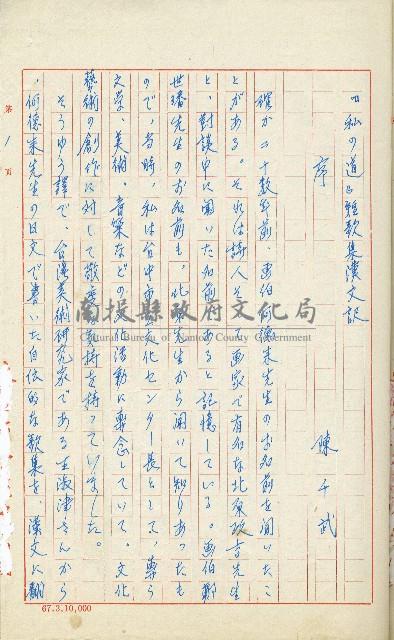 『私の道』短歌集漢文記
序
陳千武
確か二十数年前、画伯何徳来先生のお名前を聞いたこ
とがある。それは詩人そして画家で有名な北原政吉先生
と、対談中に聞いた名前であると記憶している。画伯鄭
世璠先生のお名前も、北原先生から聞いて知りあったも
ので、当時、私は台中市文化センター長として、専ら
文学、美術、音楽などの文化活動に専念していて、文化
藝術の創作に対して敬虔な気持を持っていました。
そうゆう譯で、台湾美術研究家である王淑津さんから
、何德来先生の日文で書いた自伝的な歌集を漢文に翻
第1頁
南投縣政府文化局
Cultural Bureau of Nantou County Government
67.3.10,000